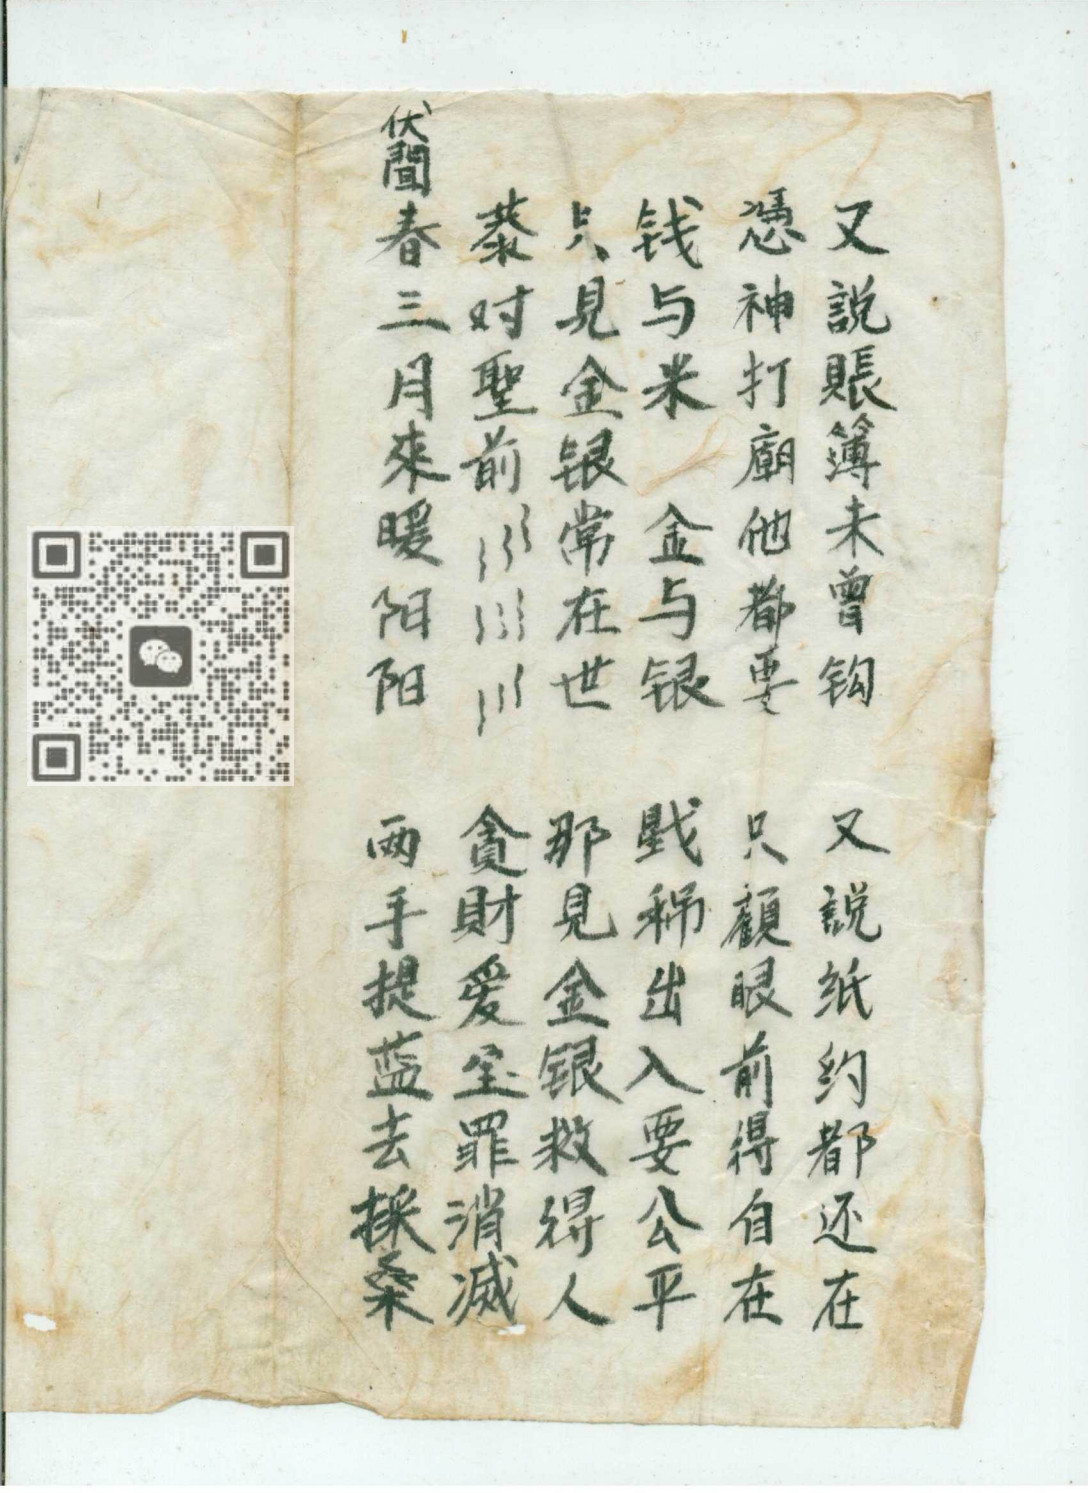 又說賬簿未曾钩 又說纸约都还在
憑神打廟他都要 只顧眼前得自在
钱与米 金与银 戥稱出入要公平
只見金银常在世 那見金银救得人
恭对聖前 貪財爱宝罪消滅
伏聞春三月來暖阳阳 两手提蓝去採桑